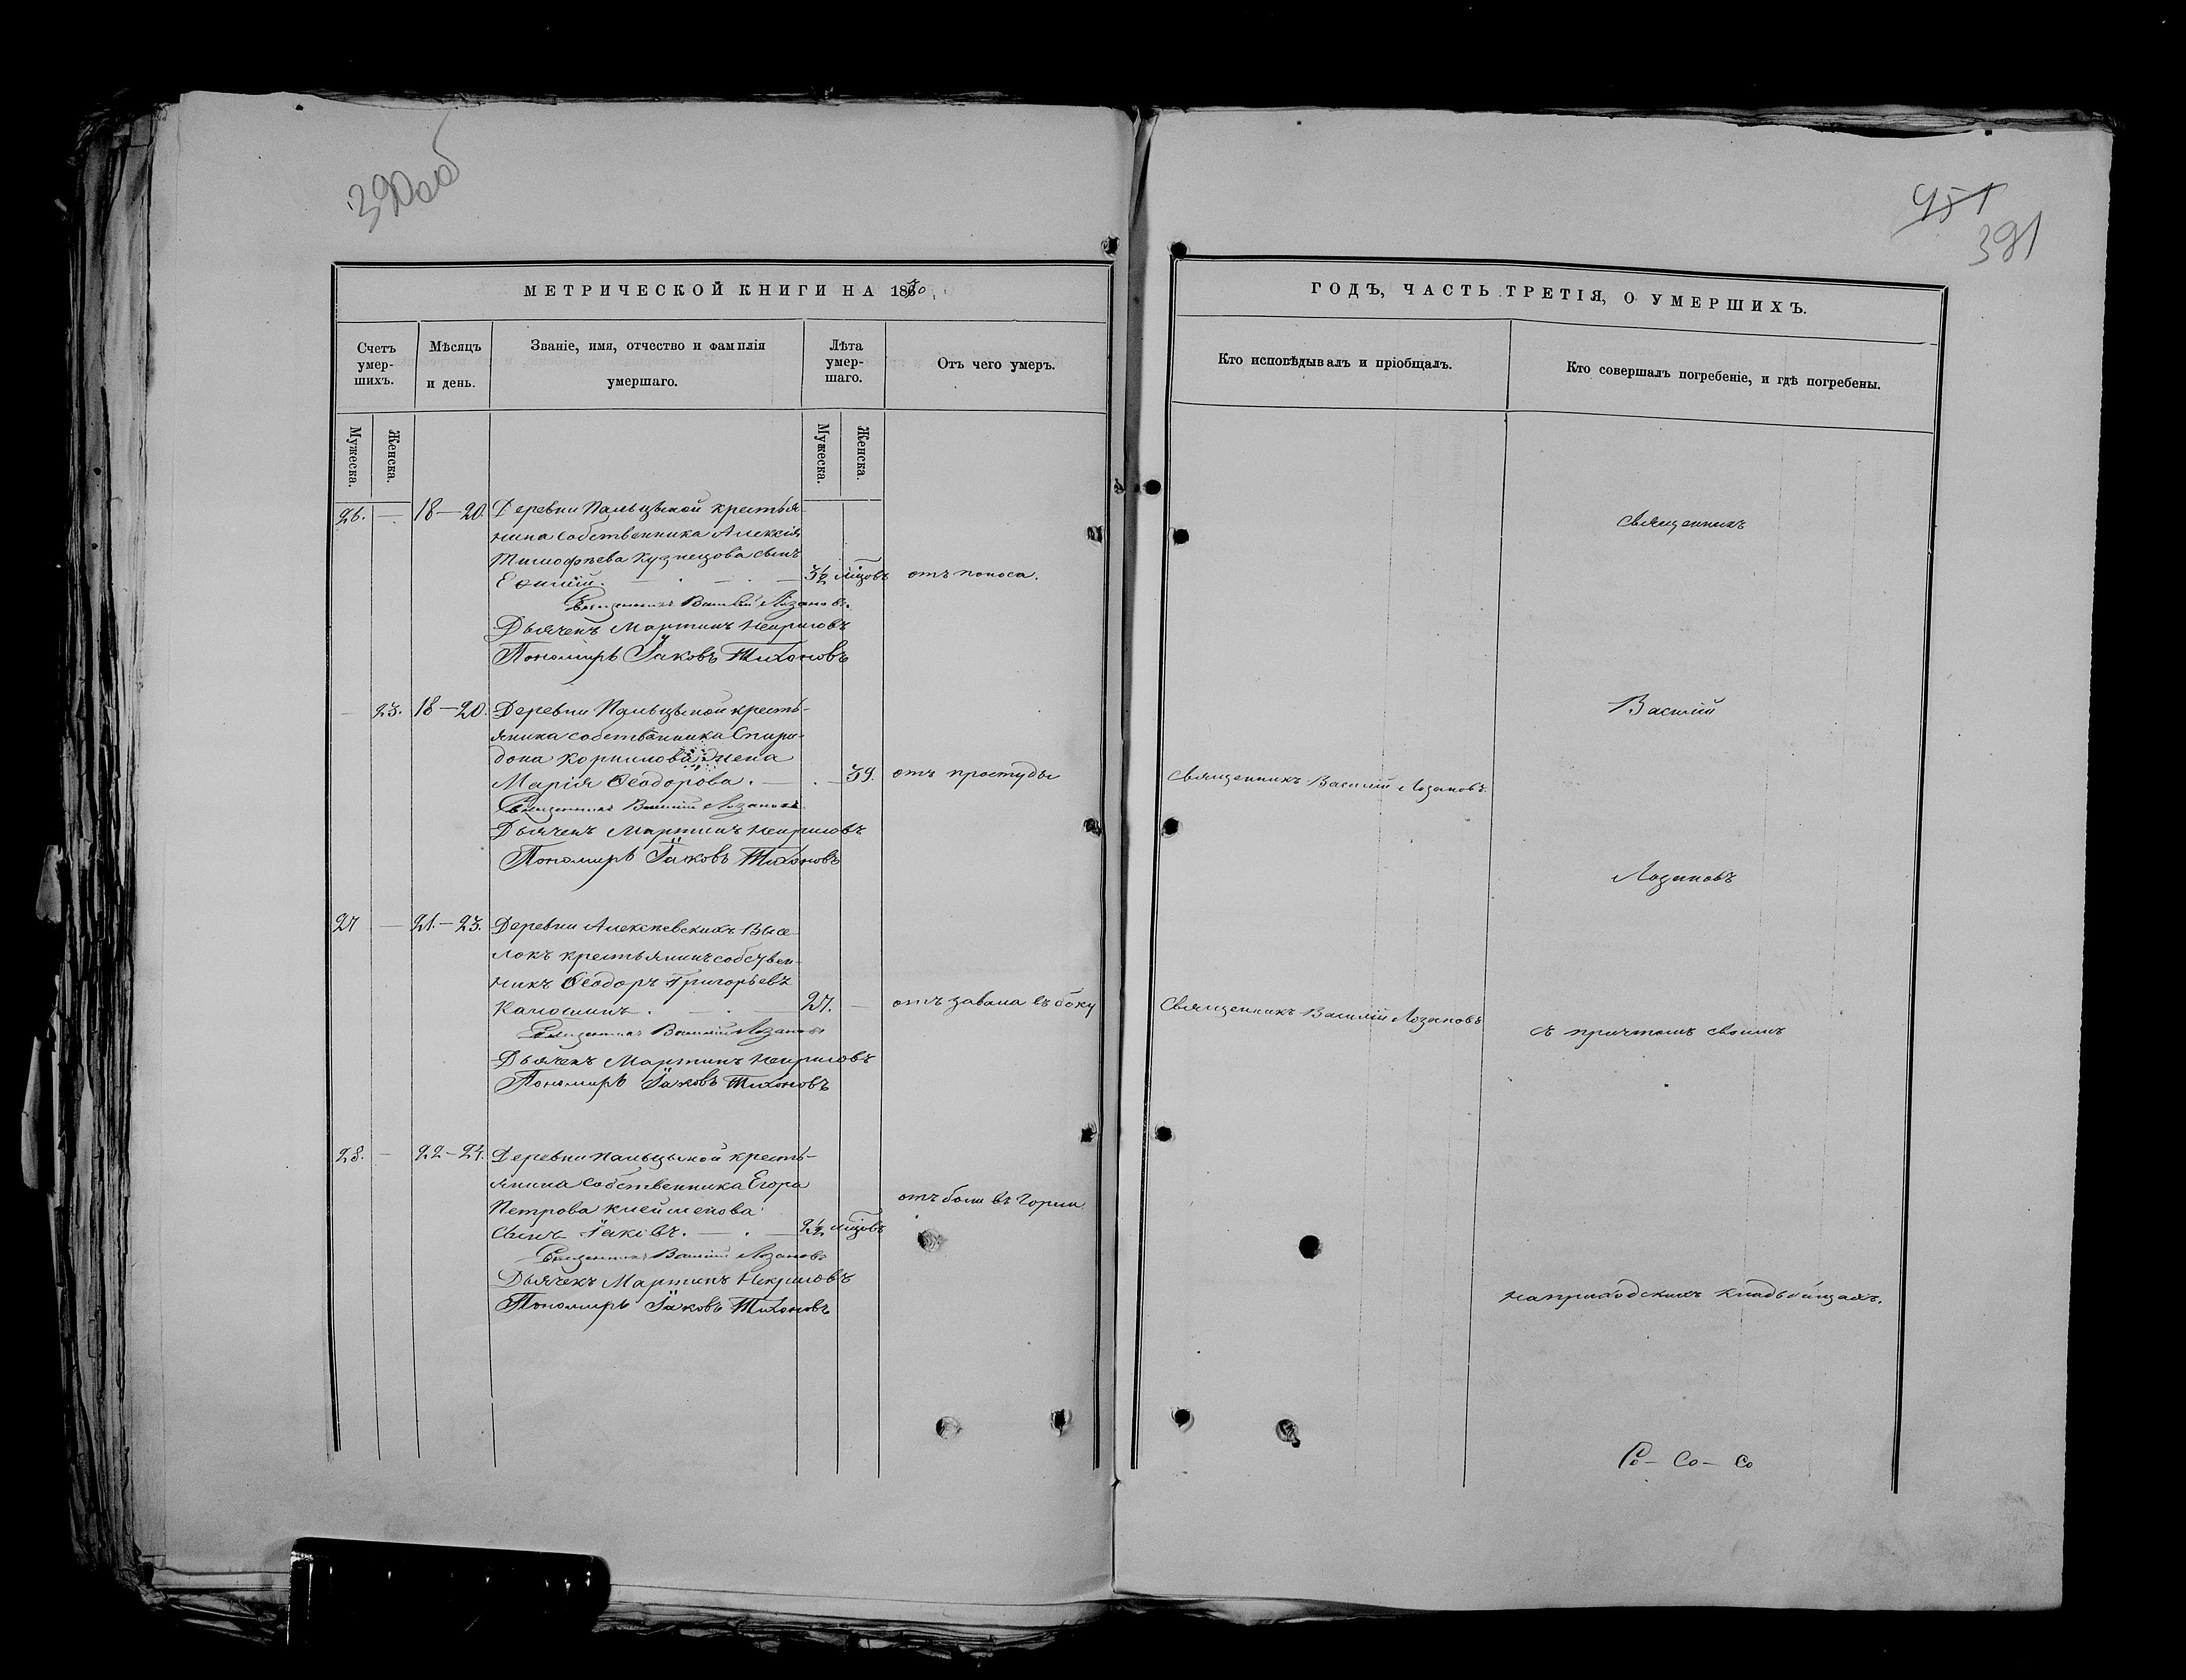 390об
451
391
МЕТРИЧЕСКОЙ КНИГИ НА 1870
ГОДЪ, ЧАСТЬ ТРЕТІЯ, О УМЕРШИХЪ.
Счетъ умер-шихъ.
Мѣсяцъ и день.
Званіе, имя, отчество и фамилія умершаго.
Лѣта умер-шаго.
Отъ чего умеръ.
Кто исповѣдывалъ и пріобщалъ.
Кто совершалъ погребеніе, и гдѣ погребены.
Мужеска.
Женска.
Мужеска.
Женска.
26. — 18—20. Деревни Пальцыной крестья-
нина собственника Алексія
Тимофѣева Кузнецова сынъ
3½ мцовъ отъ поноса.
Священникъ Василій Лозановъ.
Дьячекъ Мартинъ Некрасовъ
Пономарь Іаковъ Тихоновъ
— 23. 18—20. Деревни Пальцыной кресть-
янина собственника Спири-
дона Корнилова жена
Марія Ѳеодорова. — 39. отъ простуды
Священникъ Василій Лозановъ.
Дьячекъ Мартинъ Некрасовъ
Пономарь Іаковъ Тихоновъ
27 — 21.—23. Деревни Алексѣевскихъ Высе-
локъ крестьянинъ собствен-
никъ Ѳеодоръ Григорьевъ
27. — отъ завала въ боку
Священникъ Василій Лозановъ
Дьячекъ Мартинъ Некрасовъ
Пономарь Іаковъ Тихоновъ
28. — 22—24. Деревни Пальцыной кресть-
янина собственника Егора
Петрова Клейменова
сынъ Іаковъ. — 2½ мцовъ
отъ боли въ горлѣ
Священникъ Василій Лозановъ
Дьячекъ Мартинъ Некрасовъ
Пономарь Іаковъ Тихоновъ
Священникъ Василій Лозановъ.
Священникъ Василій Лозановъ
Священникъ
Василій
Лозановъ
съ причтомъ своимъ
на приходскихъ кладбищахъ.
Со — со — со